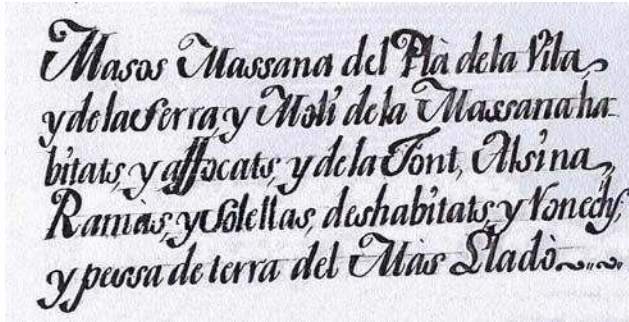 Masos Massana del Plà dela Vila,
y dela Serra, y Molí dela Massana ha-
bitats, y affocats, y dela Font, Alsina,
Ramias, y Solellas, deshabitats, y ronechs,
y pessa de terra del Màs Lladò